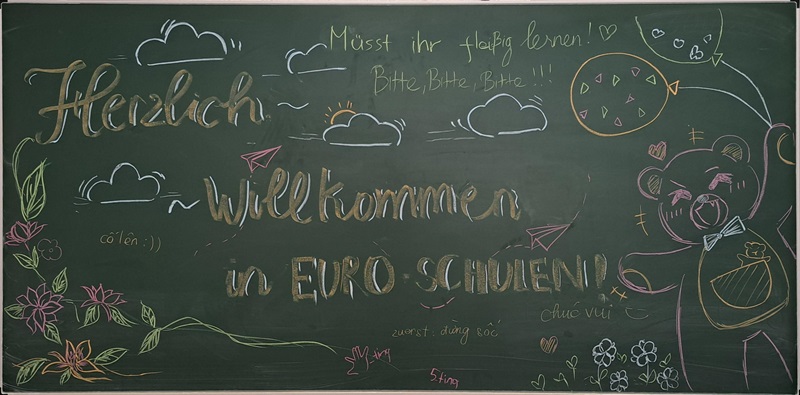 Müsst ihr fleißig lernen!
Bitte, Bitte, Bitte!!!
Herzlich
~ Willkommen
in EURO-SCHULEN!
cố lên :))
chúc vui
zuerst: đừng sốc
5.ting